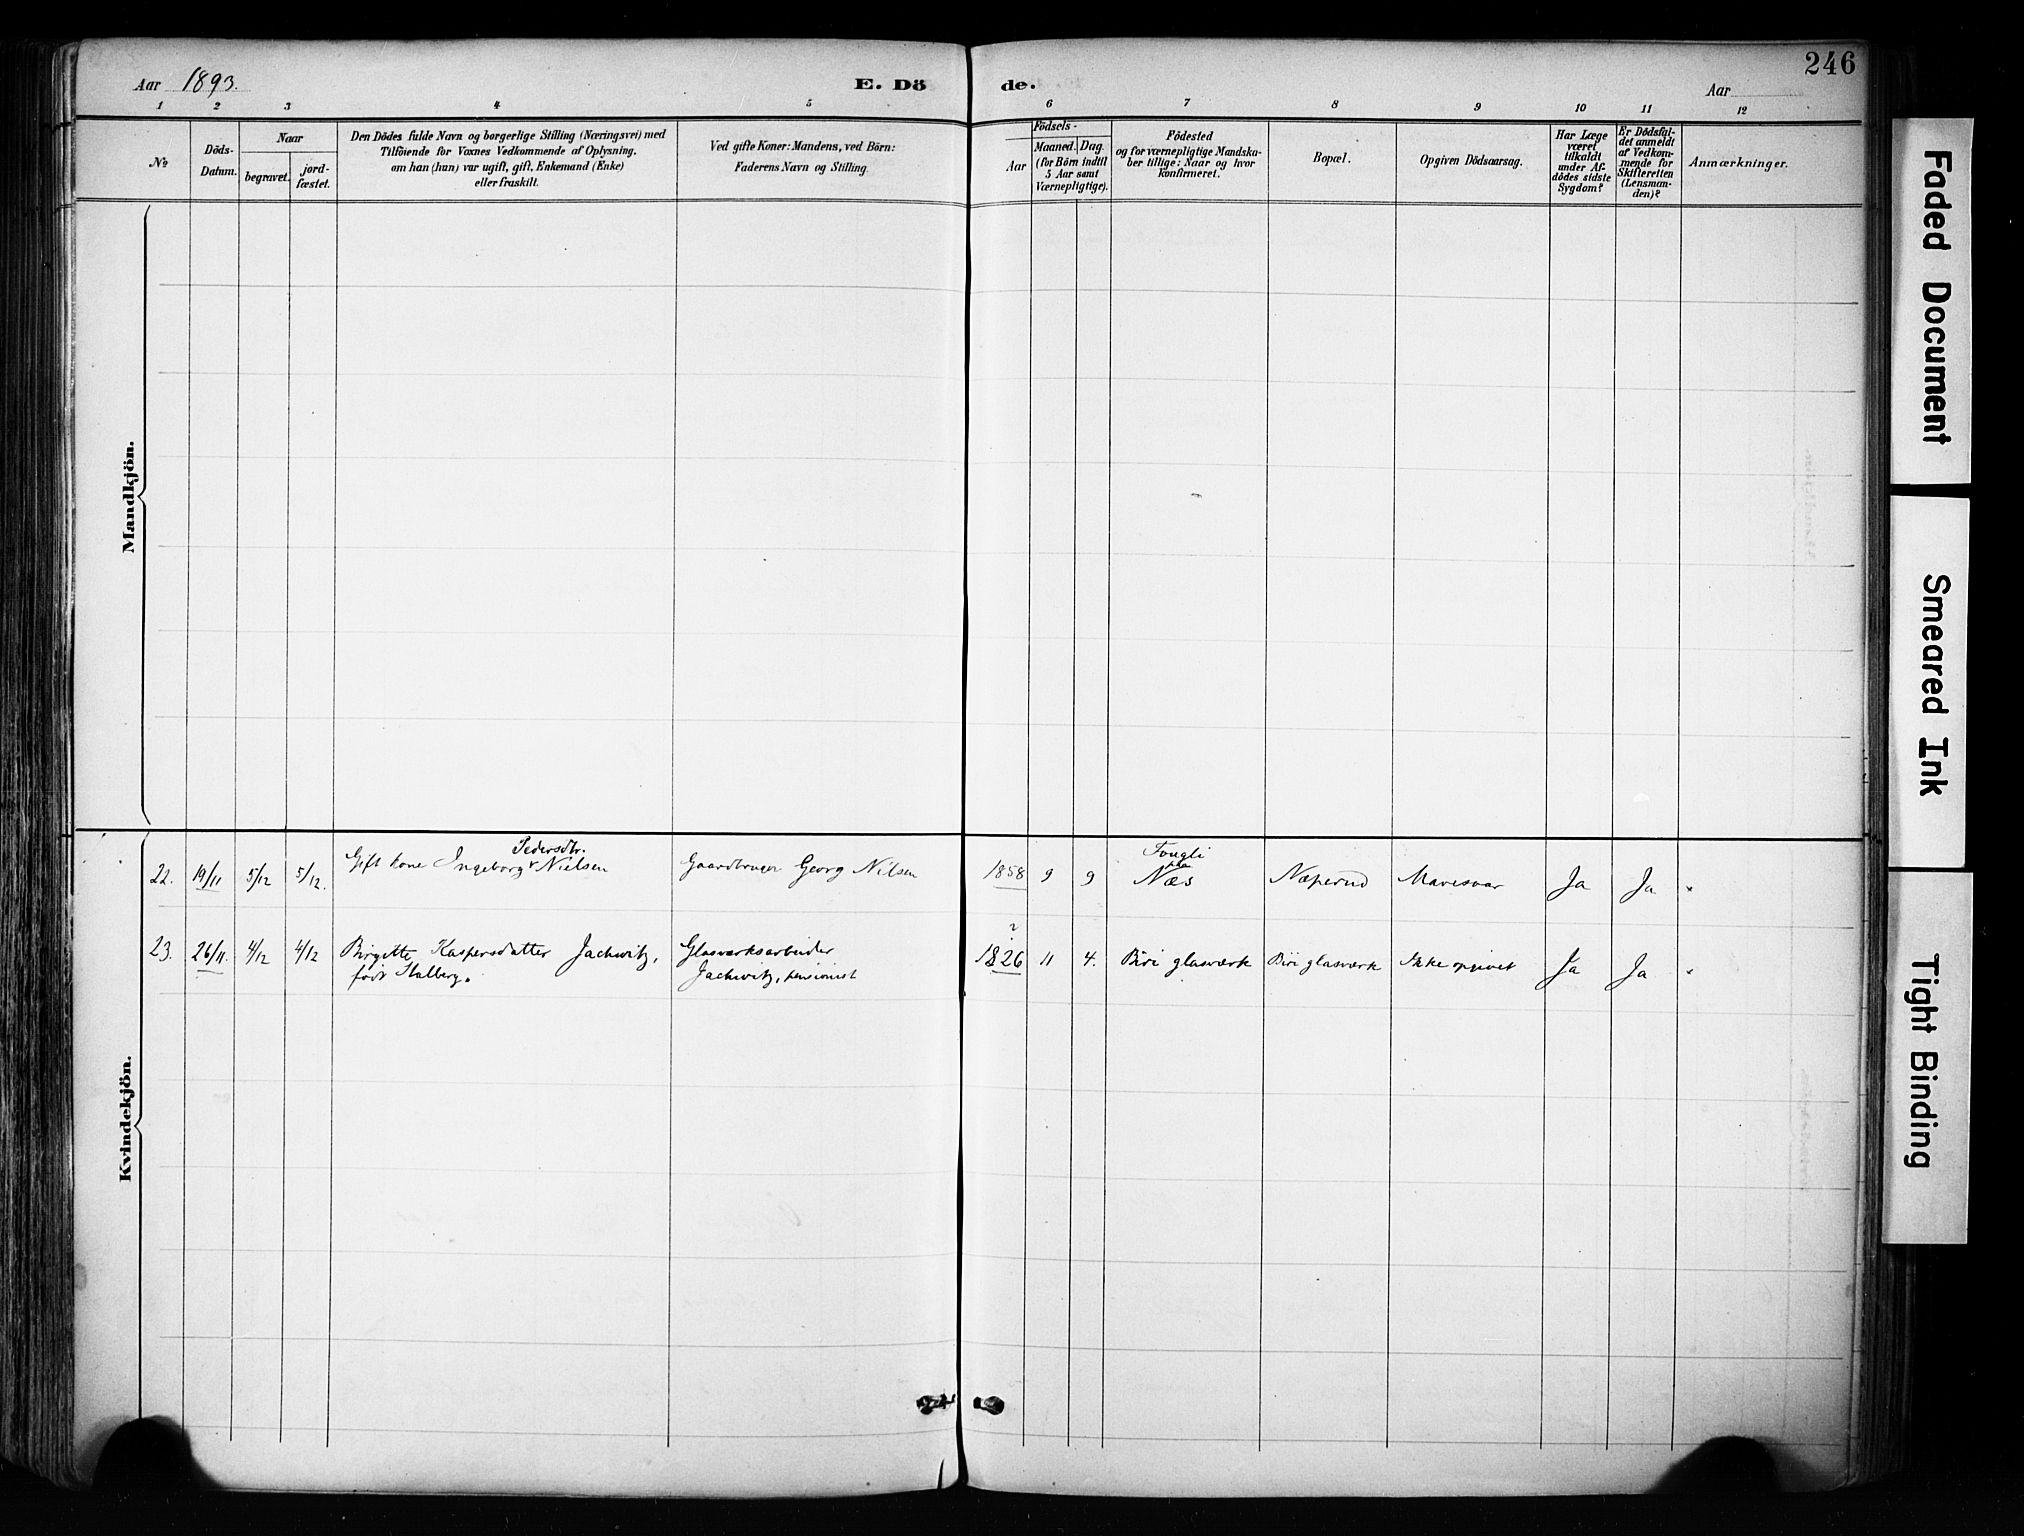 246
Aar 1893.
E. Dö
de.
Aar
1 2 3 4 5 6 7 8 9 10 11 12
No
Döds-
Datum.
Naar
begravet.
jord-
fæstet.
Den Dödes fulde Navn og borgerlige Stilling (Næringsvei) med
Tilföiende for Voxnes Vedkommende af Oplysning,
om han (hun) var ugift, gift, Enkemand (Enke)
eller fraskilt.
Ved gifte Koner: Mandens, ved Börn:
Faderens Navn og Stilling.
Födsels-
Aar
Maaned.
Dag.
(for Börn indtil
5 Aar samt
Værnepligtige).
Födested
og for værnepligtige Mandska-
ber tillige: Naar og hvor
konfirmeret.
Bopæl.
Opgiven Dödsaarsag.
Har Læge
været
tilkaldt
under Af-
dödes sidste
Sygdom?
Er Dödsfal-
det anmeldt
af Vedkom-
mende for
Skifteretten
(Lensman-
den)?
Anmærkninger.
Mandkjön.
Kvindekjön.
Pedersdtr.
22. 19/11 5/12 5/12. Gift kone Ingeborg Nielsen Gaardbruger Georg Nilsen 1858 9 9
paa
Næs Næperud Mavesaar Ja Ja "
?
23. 26/11. 4/12 4/12 Birgitte Kaspersdatter Jachwitz, Glasværksarbeider 1826 11 4. Biri glasværk Biri glasværk Ikke opgivet Ja Ja "
født Stalberg. Jachwitz, pensionist
Faded Document
Smeared Ink
Tight Binding